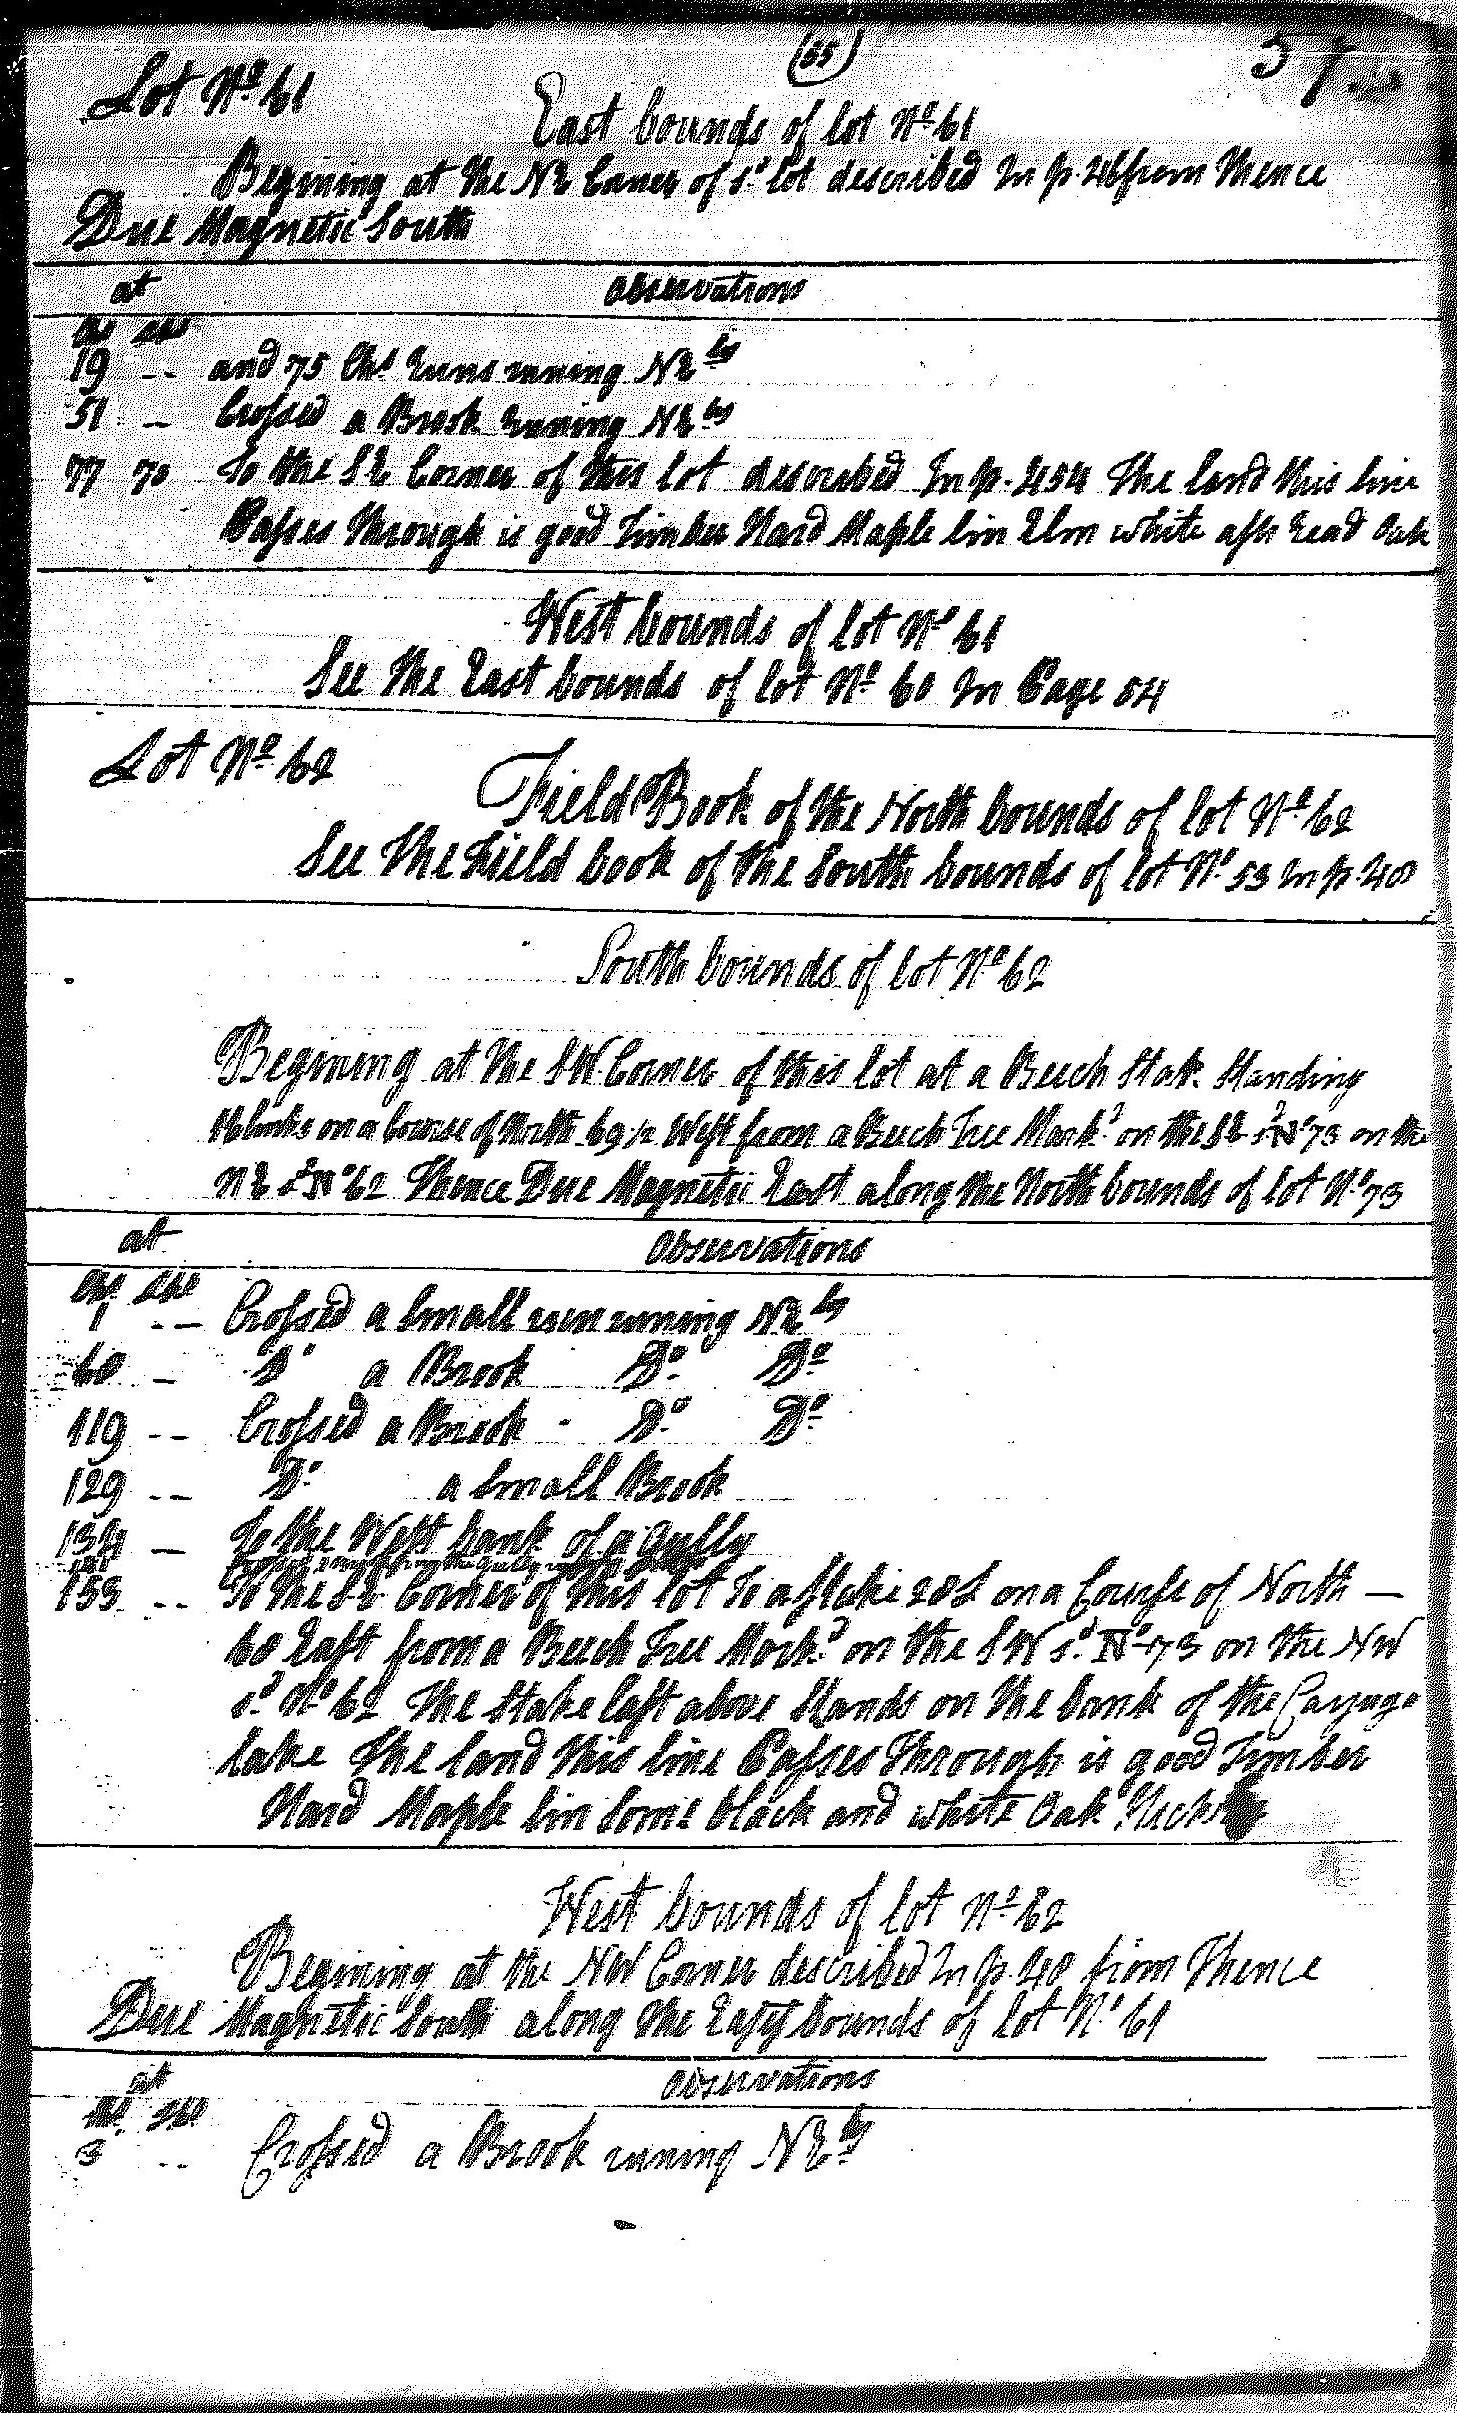 (55)
Lot Nº 61
East bounds of lot Nº 61
Begining at the NE Corner of sd lot described In p. from Thence
Due Magnetic South
at Observations
Chs Lks
19 -- and 75 Chs runs runing NEly
51 - Crossed a Brook runing NEly
77 70 To the SE Corner of this lot described In p. The land this line
Passes Through is good Timber Hard Maple lin Elm white ash read Oak
West bounds of lot Nº 61
See The East bounds of lot Nº 60 In Page 54
Lot Nº 62
Field Book of the North bounds of lot Nº 62
See The Field book of the South bounds of lot Nº 53 In p. 48
South bounds of lot Nº 62
Begining at the SW Corner of this lot at a Beech Stak Standing
links on a Course of North 69½ West from a Beech Tree Markd on the SE sd Nº 73 on the
NE sd Nº 62 Thence Due Magnetic East along the North bounds of lot Nº 73
at Observations
Chs Lks
1 -- Crossed a Small run runing NEly
60 - Dº a Brook Dº Dº
119 -- Crossed a Brook - Dº Dº
129 -- Dº a Small Brook
134 - To the West bank of a Gully
153 -- To the SE Corner of this lot To a Stake 20 L on a Course of North —
60 East from a Beech Tree Markd on the SW sd Nº 73 on the NW
sd Nº 62 The Stake last above Stands on the bank of the Cayuga
lake The land this line Passes Through is good Timber
Hard Maple lin Some black and white Oak
West bounds of lot Nº 62
Begining at the NW Corner described In p. 40 from Thence
Due Magnetic South along the East bounds of lot Nº 61
at Observations
Chs Lks
3 -- Crossed a Brook runing NEly